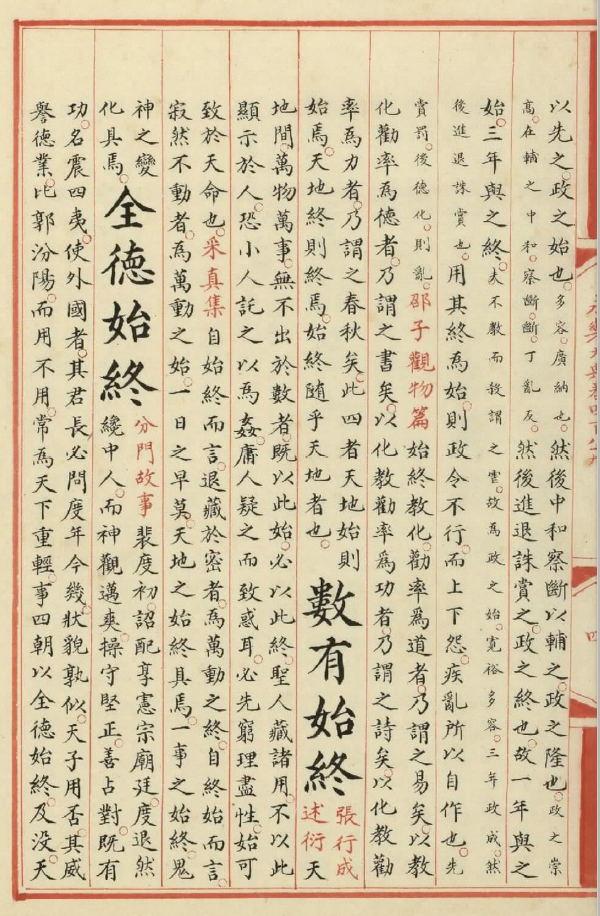 以先之。政之始也。多容廣納也。然後中和察斷以輔之。政之隆也。政之崇
高。在輔之中和。察斷。斷。丁亂反。然後進退誅賞之。政之終也。故一年與之
始。三年與之終。夫不教而殺謂之虐。故為政之始。寬裕多容。三年政成。然
後進退誅賞也。用其終為始。則政令不行。而上下怨疾。亂所以自作也。先
賞罰。後德化。則亂。邵子觀物篇始終教化。勸率為道者。乃謂之易矣。以教
化勸率為德者。乃謂之書矣。以化教勸率為功者。乃謂之詩矣。以化教勸
率為力者。乃謂之春秋矣。此四者天地始則
始焉。天地終則終焉。始終隨乎天地者也。
數有始終
張行成
述衍天
地間。萬物萬事。無不出於數者。既以此始。必以此終。聖人藏諸用。不以此
顯示於人。恐小人託之以為姦。庸人疑之而致惑耳。必先窮理盡性。始可
致於天命也。采真集自始終而言。退藏於密者。為萬動之終。自終始而言。
寂然不動者。為萬動之始。一日之早莫。天地之始終具焉。一事之始終。鬼
神之變
化具焉。
全德始終
分門故事裴度初詔配享憲宗廟廷。度退然
纔中人。而神觀邁爽。操守堅正。善占對。既有
功。名震四夷。使外國者。其君長必問度年今幾。狀貌孰似。天子用否。其威
譽德業。比郭汾陽。而用不用。常為天下重輕。事四朝。以全德始終。及没天
永樂大典卷四百八
四